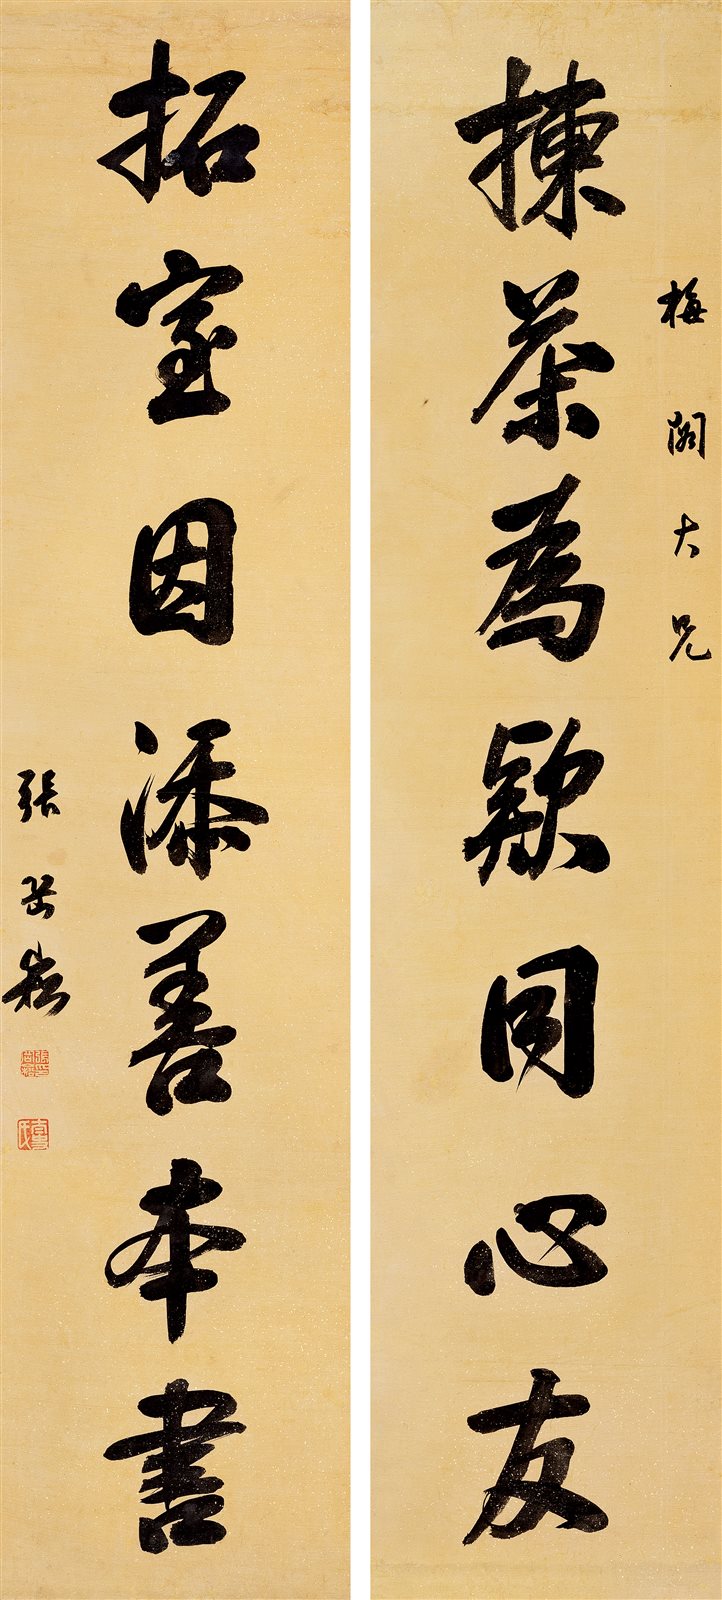 梅阁大兄
揀茶為款同心友
拓室因添善本書
張岳崧